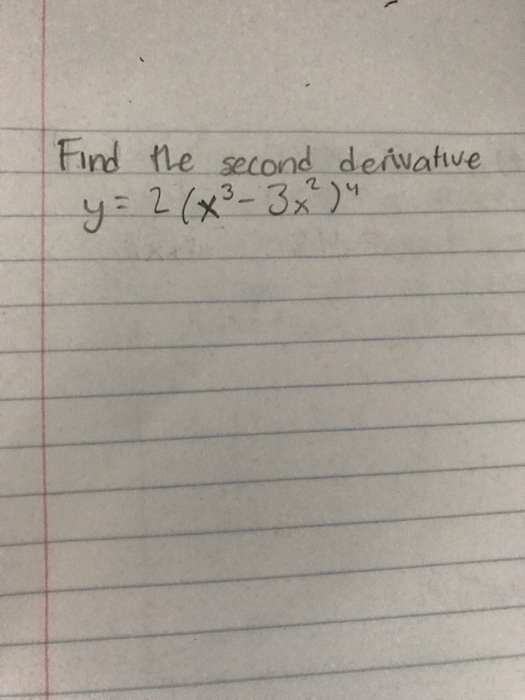 Find the second derivative
y = 2(x³ - 3x²)⁴